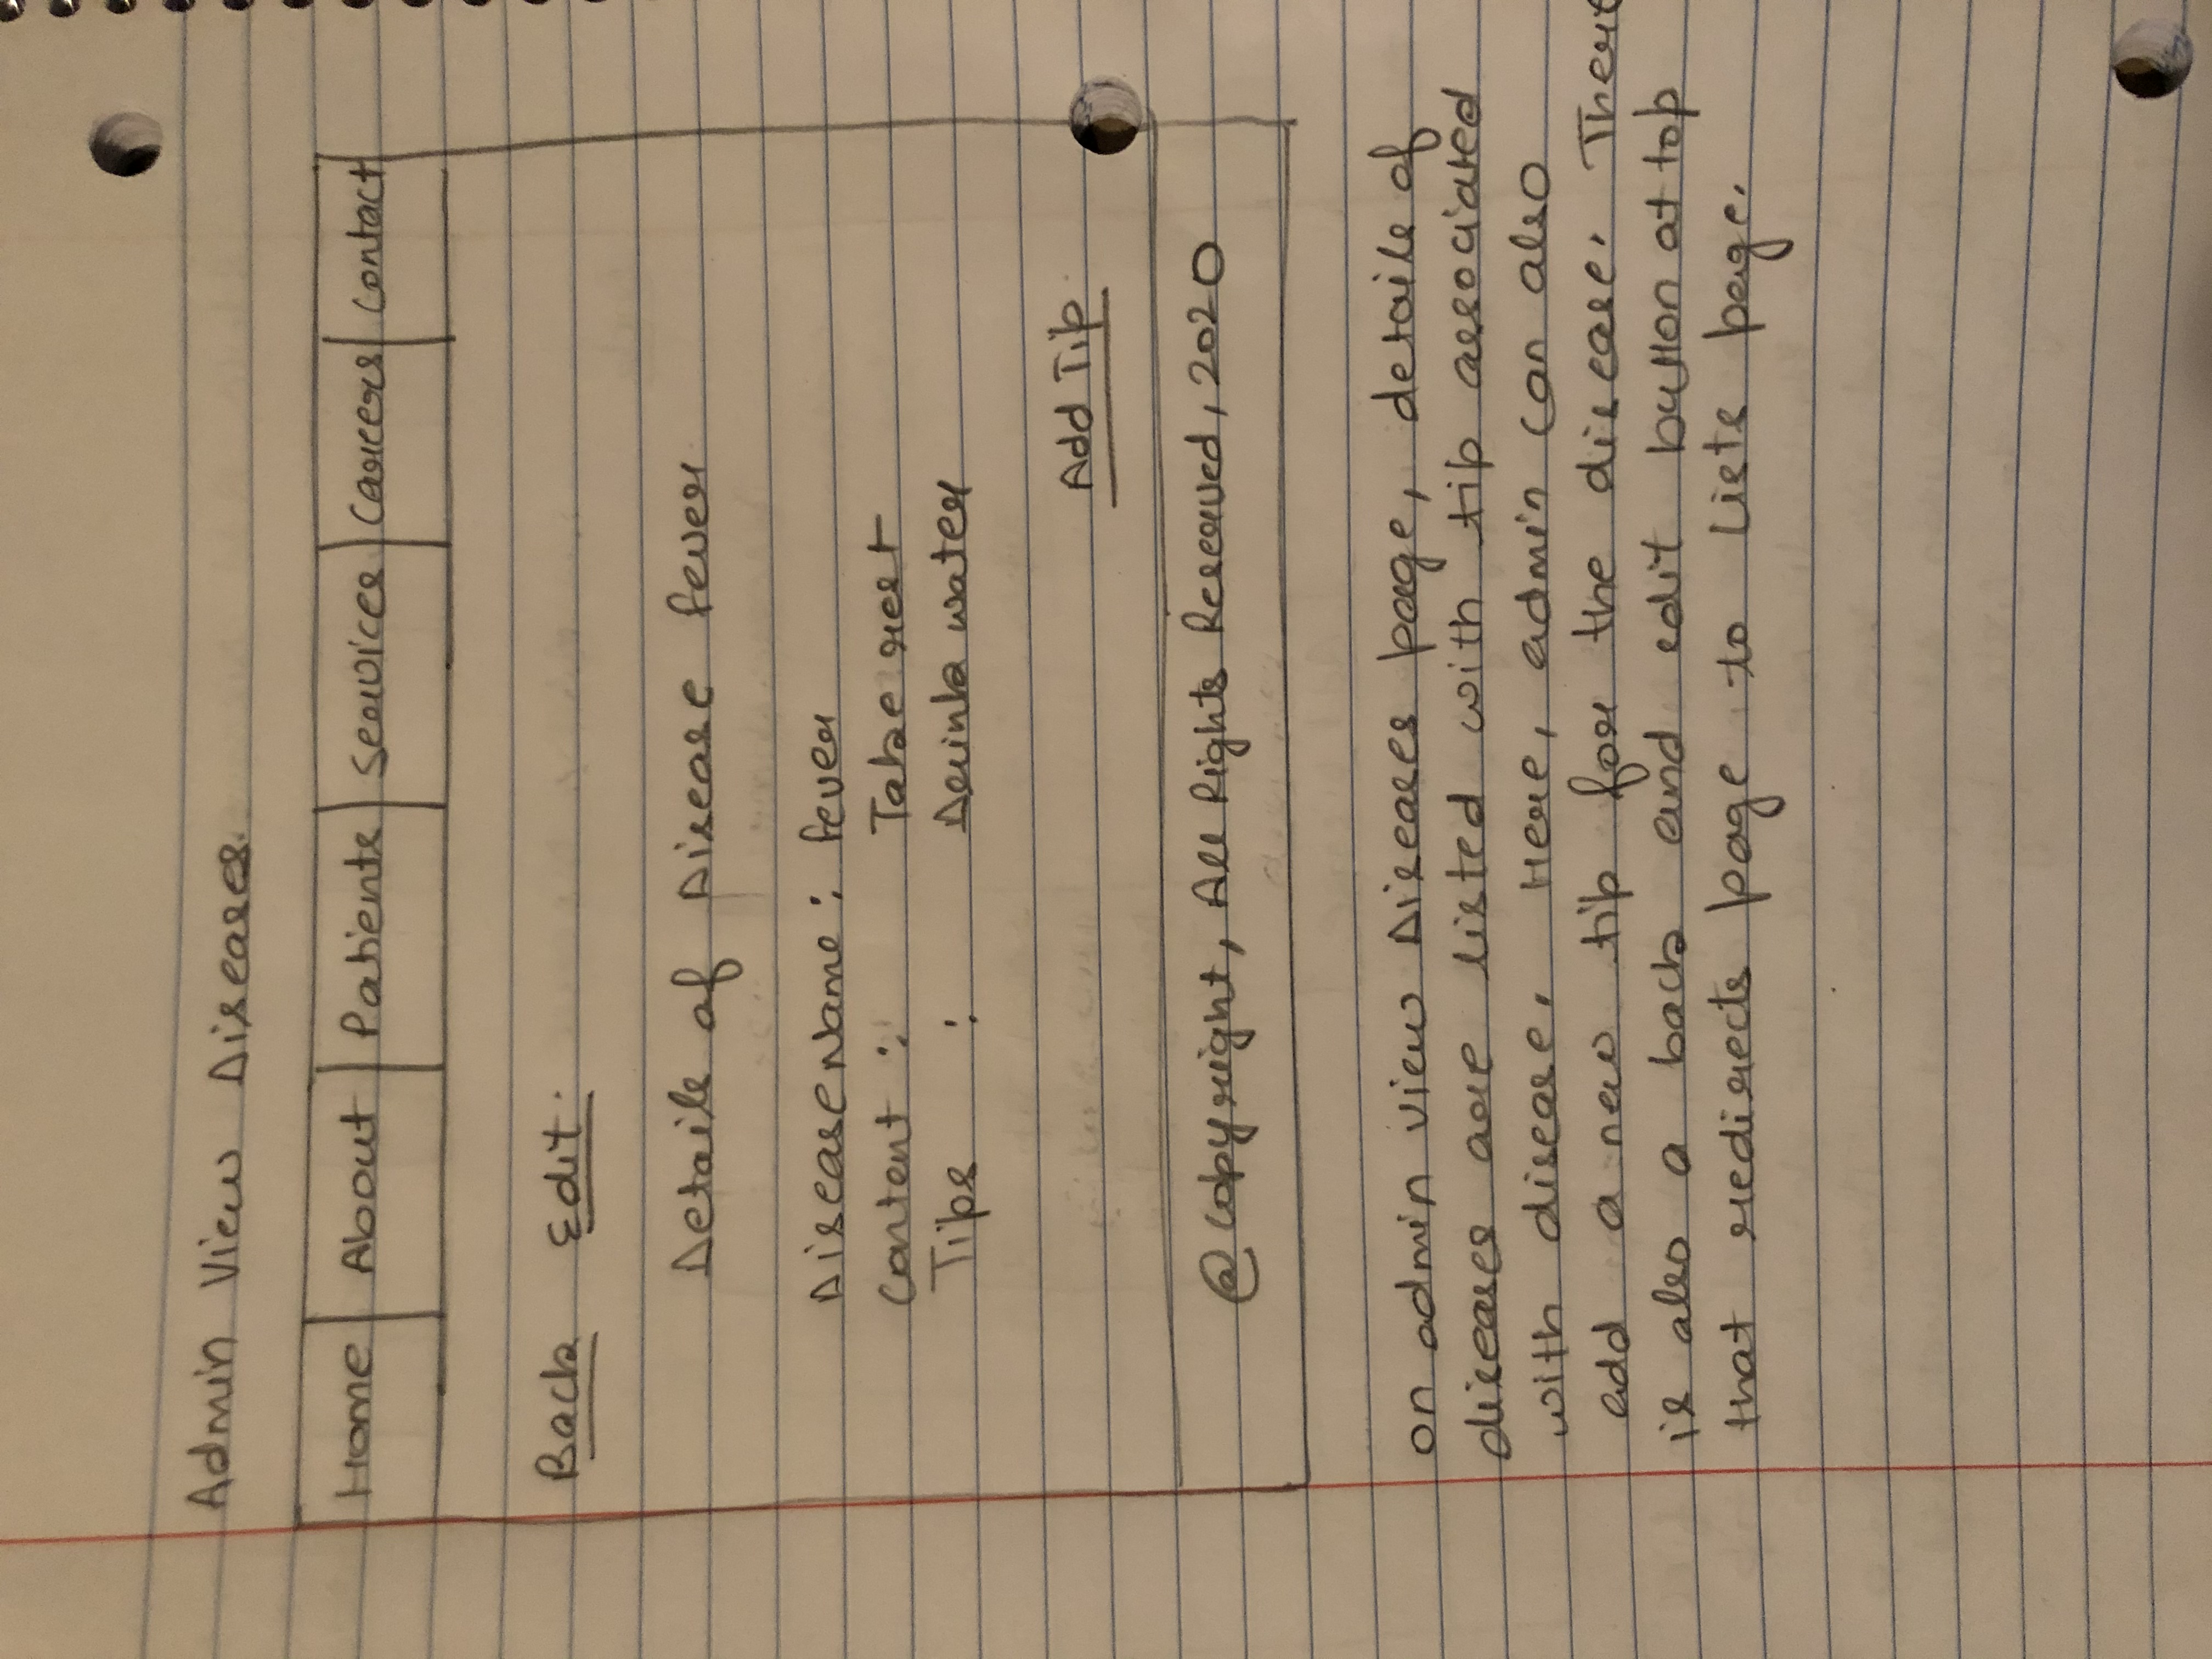 Admin View Diseases.
Home About Patients Services Careers Contact
Back Edit.
Details of Disease fever
DiseaseName : fever
Content : Take rest
Tips : Drink water
Add Tip
@copyright, All Rights Reserved, 2020
on admin view Diseases page, details of
diseases are listed with tip associated
with disease. Here, admin can also
add a new tip for the disease. There
is also a back and edit button at top
that redirects page to Lists page.